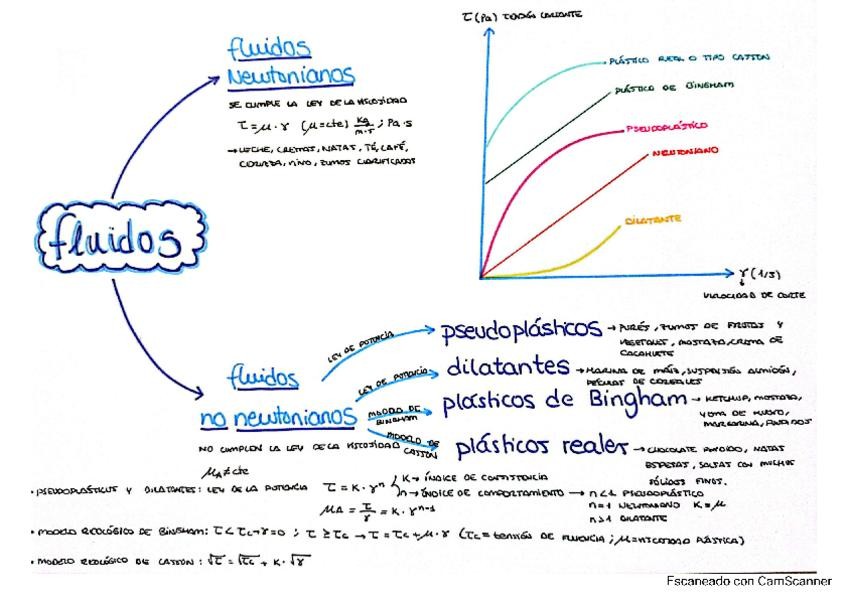 fluidos
fluidos
Newtonianos
SE CUMPLE LA LEY DE LA VISCOSIDAD
τ = μ · γ (μ = cte) kg/m·s ; Pa·s
→ LECHE, CREMAS, NATAS, TÉ, CAFÉ,
CERVEZA, VINO, ZUMOS CLARIFICADOS
τ (Pa) TENSIÓN CORTANTE
PLÁSTICO REAL O TIPO CASSON
PLÁSTICO DE BINGHAM
PSEUDOPLÁSTICO
NEWTONIANO
DILATANTE
γ (1/s)
VELOCIDAD DE CORTE
fluidos
no newtonianos
NO CUMPLEN LA LEY DE LA VISCOSIDAD
μA ≠ cte
LEY DE POTENCIA
pseudoplásticos → PURÉS, ZUMOS DE FRUTAS Y
VEGETALES, MOSTAZA, CREMA DE
CACAHUETE
LEY DE POTENCIA
dilatantes → HARINA DE MAÍZ, SUSPENSIÓN ALMIDÓN,
DE CEREALES
MODELO DE
BINGHAM
plásticos de Bingham → KETCHUP, MOSTAZA,
YEMA DE HUEVO,
MARGARINA,
MODELO DE
CASSON
plásticos reales → CHOCOLATE FUNDIDO, NATAS
ESPESAS, SALSAS CON MUCHOS
SÓLIDOS FINOS.
· PSEUDOPLÁSTICOS Y DILATANTES: LEY DE LA POTENCIA τ = K · γⁿ
K → ÍNDICE DE CONSISTENCIA
n → ÍNDICE DE COMPORTAMIENTO → n < 1 PSEUDOPLÁSTICO
n = 1 NEWTONIANO K = μ
n > 1 DILATANTE
μA = τ/γ = K · γⁿ⁻¹
· MODELO REOLÓGICO DE BINGHAM: τ < τc → γ = 0 ; τ ≥ τc → τ = τc + μ · γ (τc = TENSIÓN DE FLUENCIA ; μ = VISCOSIDAD PLÁSTICA)
· MODELO REOLÓGICO DE CASSON: √τ = √τc + K · √γ
Escaneado con CamScanner